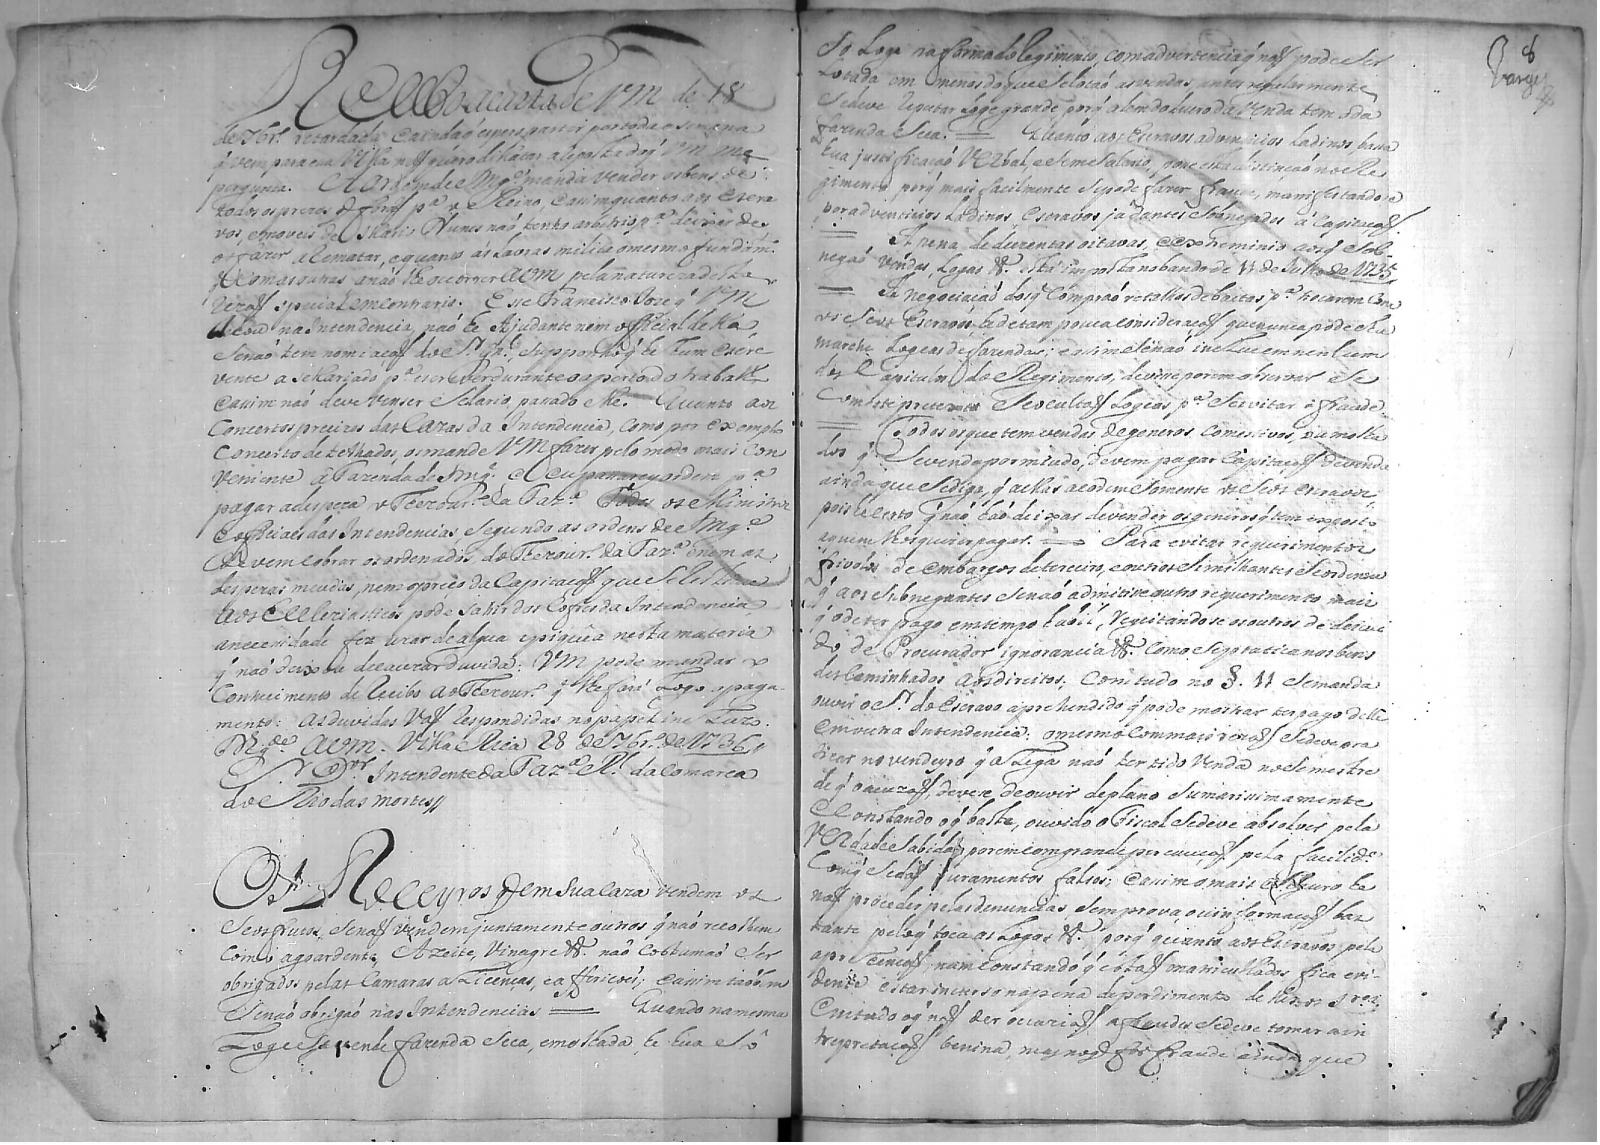 Recebo a carta de Vm de 18
de 7br.º retardada e ainda q̃ espero partir por toda a semana
q̃ vem para essa Villa não quero dilatar a reposta do q̃ Vm me
pergunta. A ordem de S Mg.e manda vender os bens de
todos os prezos q̃ forão p.ª o Reyno, e assim quanto aos escra
vos, e moveis de Mathias Nunes não tenho arbitrio p.ª deixar de
os fazer arematar, e quanto ás lavras milita o mesmo fundam.to
e com as outras a não se occorrer a Vm pela natureza dellas
rezão especial em contrario. Esse Francisco Joze q̃ Vm
achou na Intendencia, não he Ajudante nem official della
senão tem nomeação do S.r Gn.al, supponho q̃ he hum escre
vente asalariado p.ª escrever durante o aperto do trabalho
e assim não deve vencer selario, parado elle. Quanto aos
Concertos precizos das Cazas da Intendencia, como por exemplo
Concerto de telhados, os mande Vm fazer pelo modo mais con
veniente á Fazenda de S Mg.e e lá passarey ordem p.ª
pagar a despeza o Thezour.º da Faz.ª Todos os Ministros
e officiaes das Intendencias segundo as ordens de S Mg.e
devem cobrar os ordenados do Thezour.º da Faz.ª e nem as
despezas meudas, nem o preço da Capitação que se restitue
aos Eccleziasticos pode sahir dos Cofres da Intendencia
a necessidade fez uzar de algũa epiquêa nesta materia
q̃ não deixou de cauzar duvida: Vm pode mandar o
Conhecimento de recibo ao Thezour.º q̃ lhe fará logo o paga
mento: As duvidas vão respondidas no papel incluzo.
D.s g.de a Vm. Villa Rica 28 de 7br.º de 1736//
S.r D.or Intendente da Faz.ª R.l da Comarca
do Rio das mortes//
Os Roceyros q̃ em sua caza vendem os
Seos frutos, senão vendem juntamente outros q̃ não recolhem
Como agoardente, Azeite, Vinagre &ª não costumão ser
obrigados pelas Camaras a licenças, e afferições; e assim tãobem
se não obrigão nas Intendencias = Quando na mesma
Loge se vende fazenda seca, e molhada, he hua só
8
Vargas
Só Loge na forma do Regimento, com advertencia q̃ não pode ser
Lotada em menos do que se lotão as vendas, antes regularmente
se deve reputar loge grande, porq̃ alem do lucro da venda tem o da
fazenda seca. = Quanto aos Escravos adventicios ladinos basta
hua justificação verbal, e sem selario, q̃ por esta distinção no Re
gimento, porq̃ mais facilmente se pode fazer fraude, manifestando-se
por adventicios ladinos, Escravos já d'antes sonegados á Capitação
= A pena de duzentas oitavas, e exterminio aos q̃ Sob
negão Vendas, Logas &ª está imposta no bando de 11 de Julho de 1735
= Sa negociação dos q̃ comprão retalhos de baetas p.ª tocarem Com
os seos Escravos he de tam pouca consideração que nunca pode cha
marse Logeas de fazendas; e assim se não incluem nenhum
dos Capitulos do Regimento, devese porem observar se
Com este pretexto se occultão Logeas p.ª se evitar a fraude.
= Todos os que tem vendas de generos comestivos, ou molha
dos q̃ se venda por miudo, devem pagar Capitação de venda
ainda que se diga, q̃ a ellas acodem somente os seos escravos
pois he certo q̃ não hão deixar de vender os generos q̃ tem exposto
a quem lhos quizer pagar. = Para evitar requerimentos
frivolos de embargos de terceiro, e outros semilhantes se ordenou
q̃ aos subnegantes se não admitisse outro requerimento mais
q̃ o de ter pago em tempo habil, regeitandose os outros de descui
do de Procurador ignorancia &ª Como se pratica nos bens
descaminhados aos direitos; Comtudo no §. 11 se manda
ouvir o S.r do Escravo aprehendido q̃ pode mostrar ter pago delle
em outra Intendencia: o mesmo com mais rezão se deve pra
ticar no vendeyro q̃ alega não ter tido venda no Semestre
de q̃ o acuzão, devese de ouvir de plano sumarissimamente
e Constando o q̃ basta, ouvido o Fiscal se deve absolver pela
verdade sabida; porem com grande percaução pela facilid.e
Com q̃ se dão juramentos falsos; e assim o mais seguro he
não proceder pelas denuncias, sem prova, ou informação bas
tante pelo q̃ toca as Logas &ª porq̃ quanto aos Escravos pela
aprehenção, não constando q̃ estão matriculados fica evi
dente estar incurso na pena de perdimento de huns e rez.
Comtudo o q̃ não der ocazião a fraudes se deve tomar a in
trepretação benina, mas não for fraude ainda que